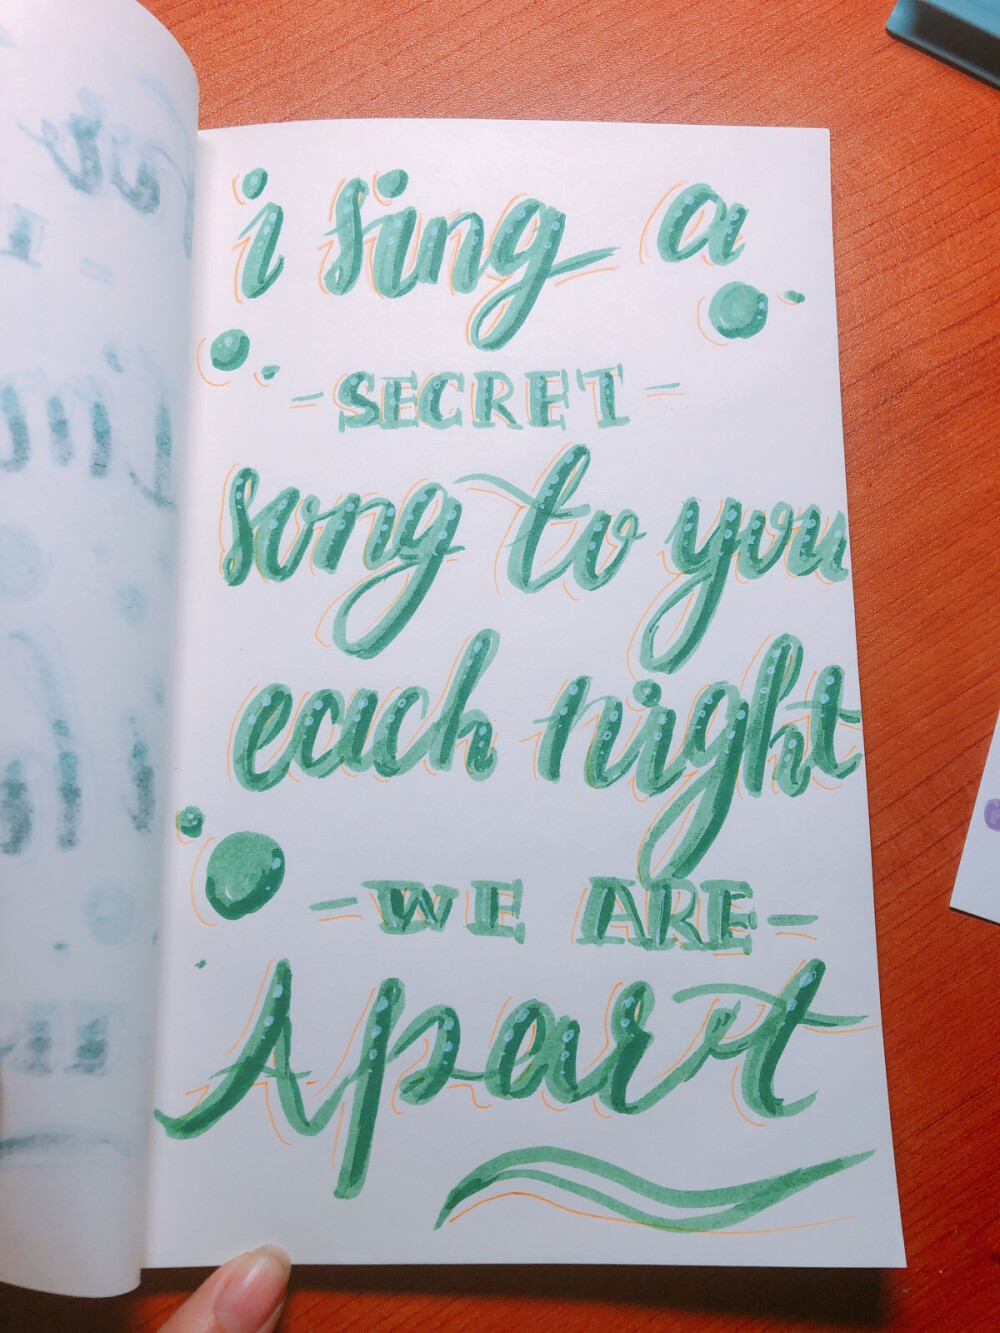 i sing a
- SECRET -
song to you
each night
- WE ARE -
Apart